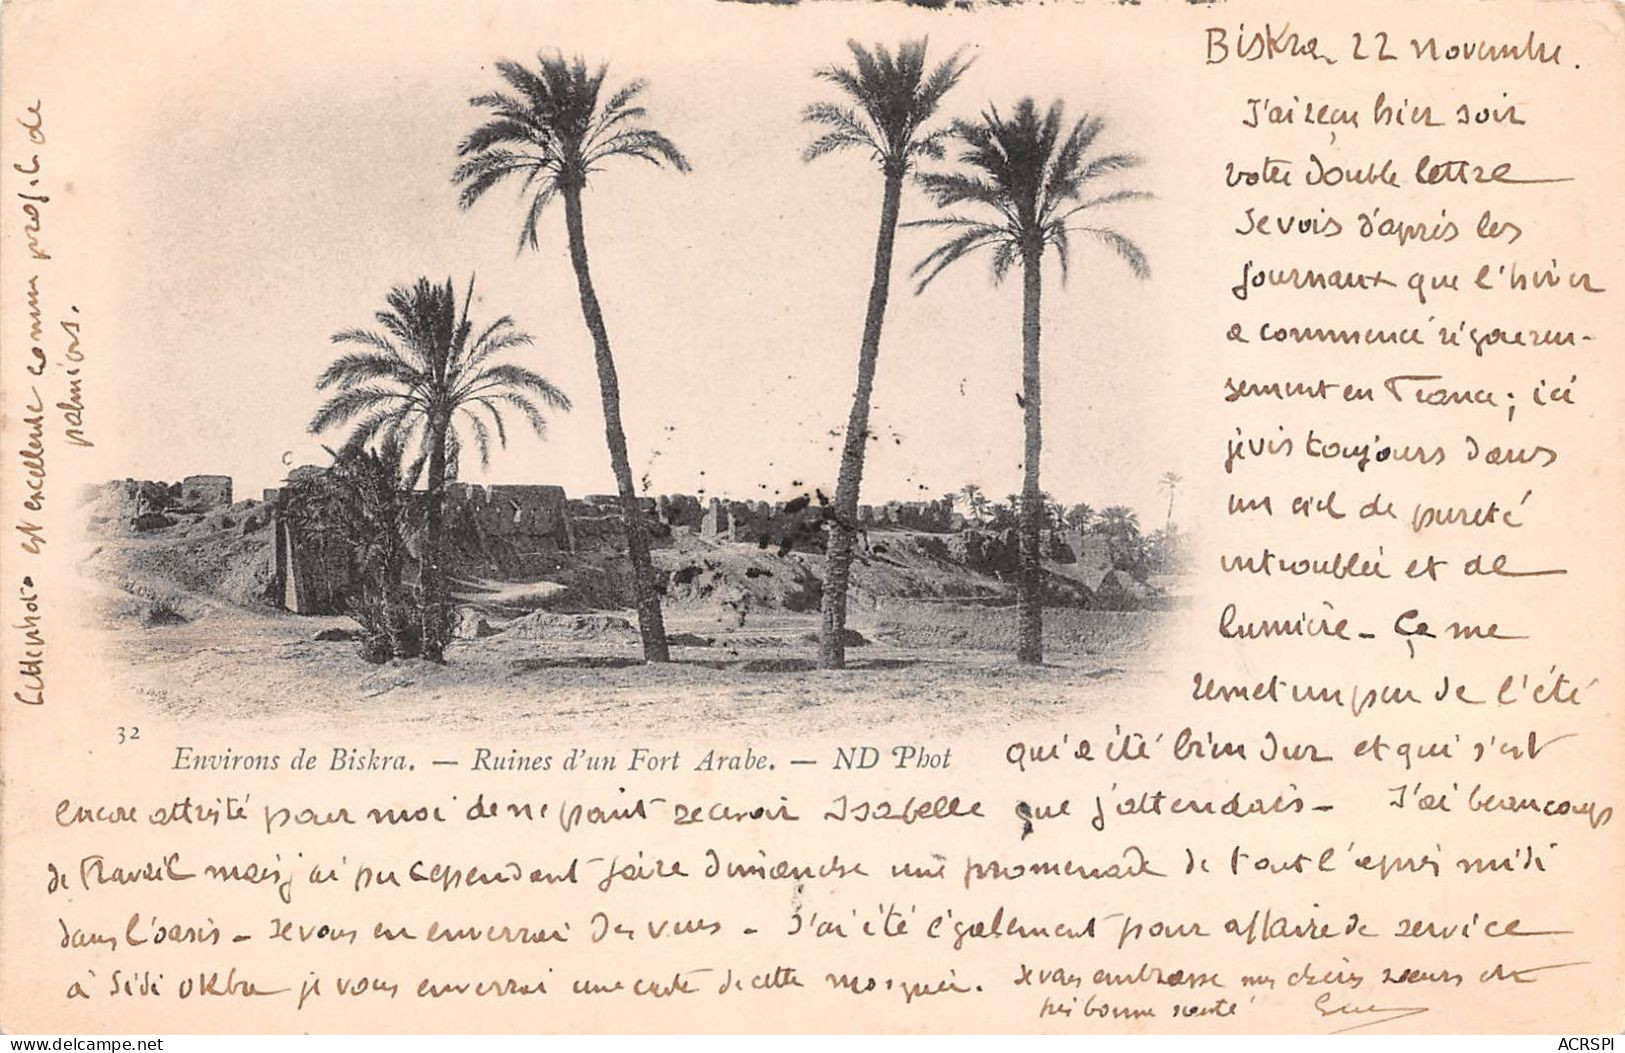 Biskra 22 novembre.
J'ai reçu hier soir
votre double lettre
Je vois d'après les
journaux que l'hiver
a commencé rigoureu-
sement en France ; ici
je vis toujours dans
un ciel de pureté
introublée et de
lumière - Ça me
remet un peu de l'été
qui a été bien dur et qui s'est
encore attristé pour moi de ne point recevoir Isabelle que j'attendais - J'ai beaucoup
de travail mais j'ai pu cependant faire dimanche une promenade de tout l'après midi
dans l'oasis - Je vous en enverrai des vues - J'ai été également pour affaire de service
à Sidi Okba je vous enverrai une carte de cette mosquée. Je vous embrasse mes chères sœurs
très bonne santé
Cette photo est excellente comme profil de
palmiers.
32
Environs de Biskra. — Ruines d'un Fort Arabe. — ND Phot
ACRSPI